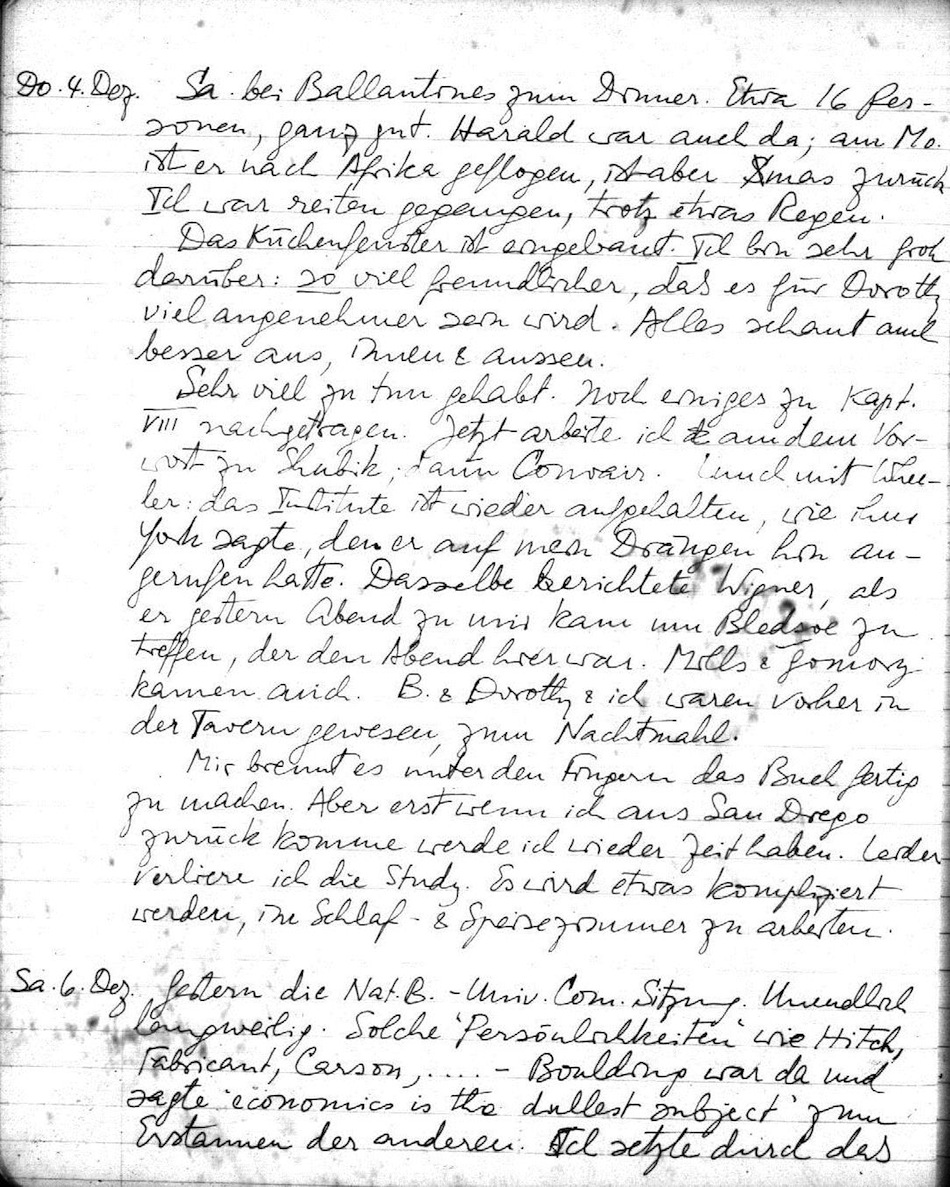 Do. 4. Dez. Sa. bei Ballantines zum Dinner. Etwa 16 Per-
sonen, ganz gut. Harald war auch da; am Mo.
ist er nach Afrika geflogen, ist aber Xmas zurück
Ich war reiten gegangen, trotz etwas Regen.
Das Küchenfenster ist eingebaut. Ich bin sehr froh
darüber: so viel freundlicher, das es für Dorothy
viel angenehmer sein wird. Alles schaut auch
besser aus, innen & aussen.
Sehr viel zu tun gehabt. Noch einiges zu Kapt.
VIII nachgetragen. Jetzt arbeite ich an dem Vor-
wort zu Shubik; dann Convair. Lunch mit Whee-
ler: das Institute ist wieder aufgehalten, wie ihm
York sagte, den er auf mein Drängen hin an-
gerufen hatte. Dasselbe berichtete Wigner, als
er gestern Abend zu mir kam um Bledsoe zu
treffen, der den Abend hier war. Mills & Gomory
kamen auch. B. & Dorothy & ich waren vorher in
der Tavern gewesen, zum Nachtmahl.
Mir brennt es unter den Fingern das Buch fertig
zu machen. Aber erst wenn ich aus San Diego
zurück komme werde ich wieder Zeit haben. Leider
verliere ich die Study. Es wird etwas kompliziert
werden, im Schlaf- & Speisezimmer zu arbeiten.
Sa. 6. Dez. Gestern die Nat. B. - Univ. Com. Sitzung. Unendlich
langweilig. Solche 'Persönlichkeiten' wie Hitch,
Fabricant, Carson, .... - Boulding war da und
sagte 'economics is the dullest subject' zum
Erstaunen der anderen. Ich setzte durch das